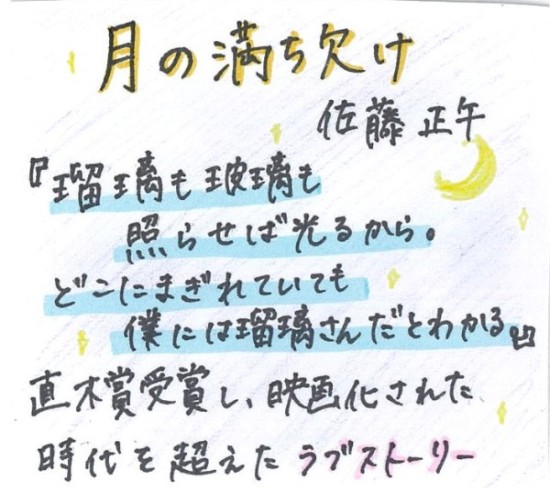 月の満ち欠け
佐藤 正午
『瑠璃も玻璃も
照らせば光るから。
どこにまぎれていても
僕には瑠璃さんだとわかる。』
直木賞受賞し、映画化された
時代を超えたラブストーリー